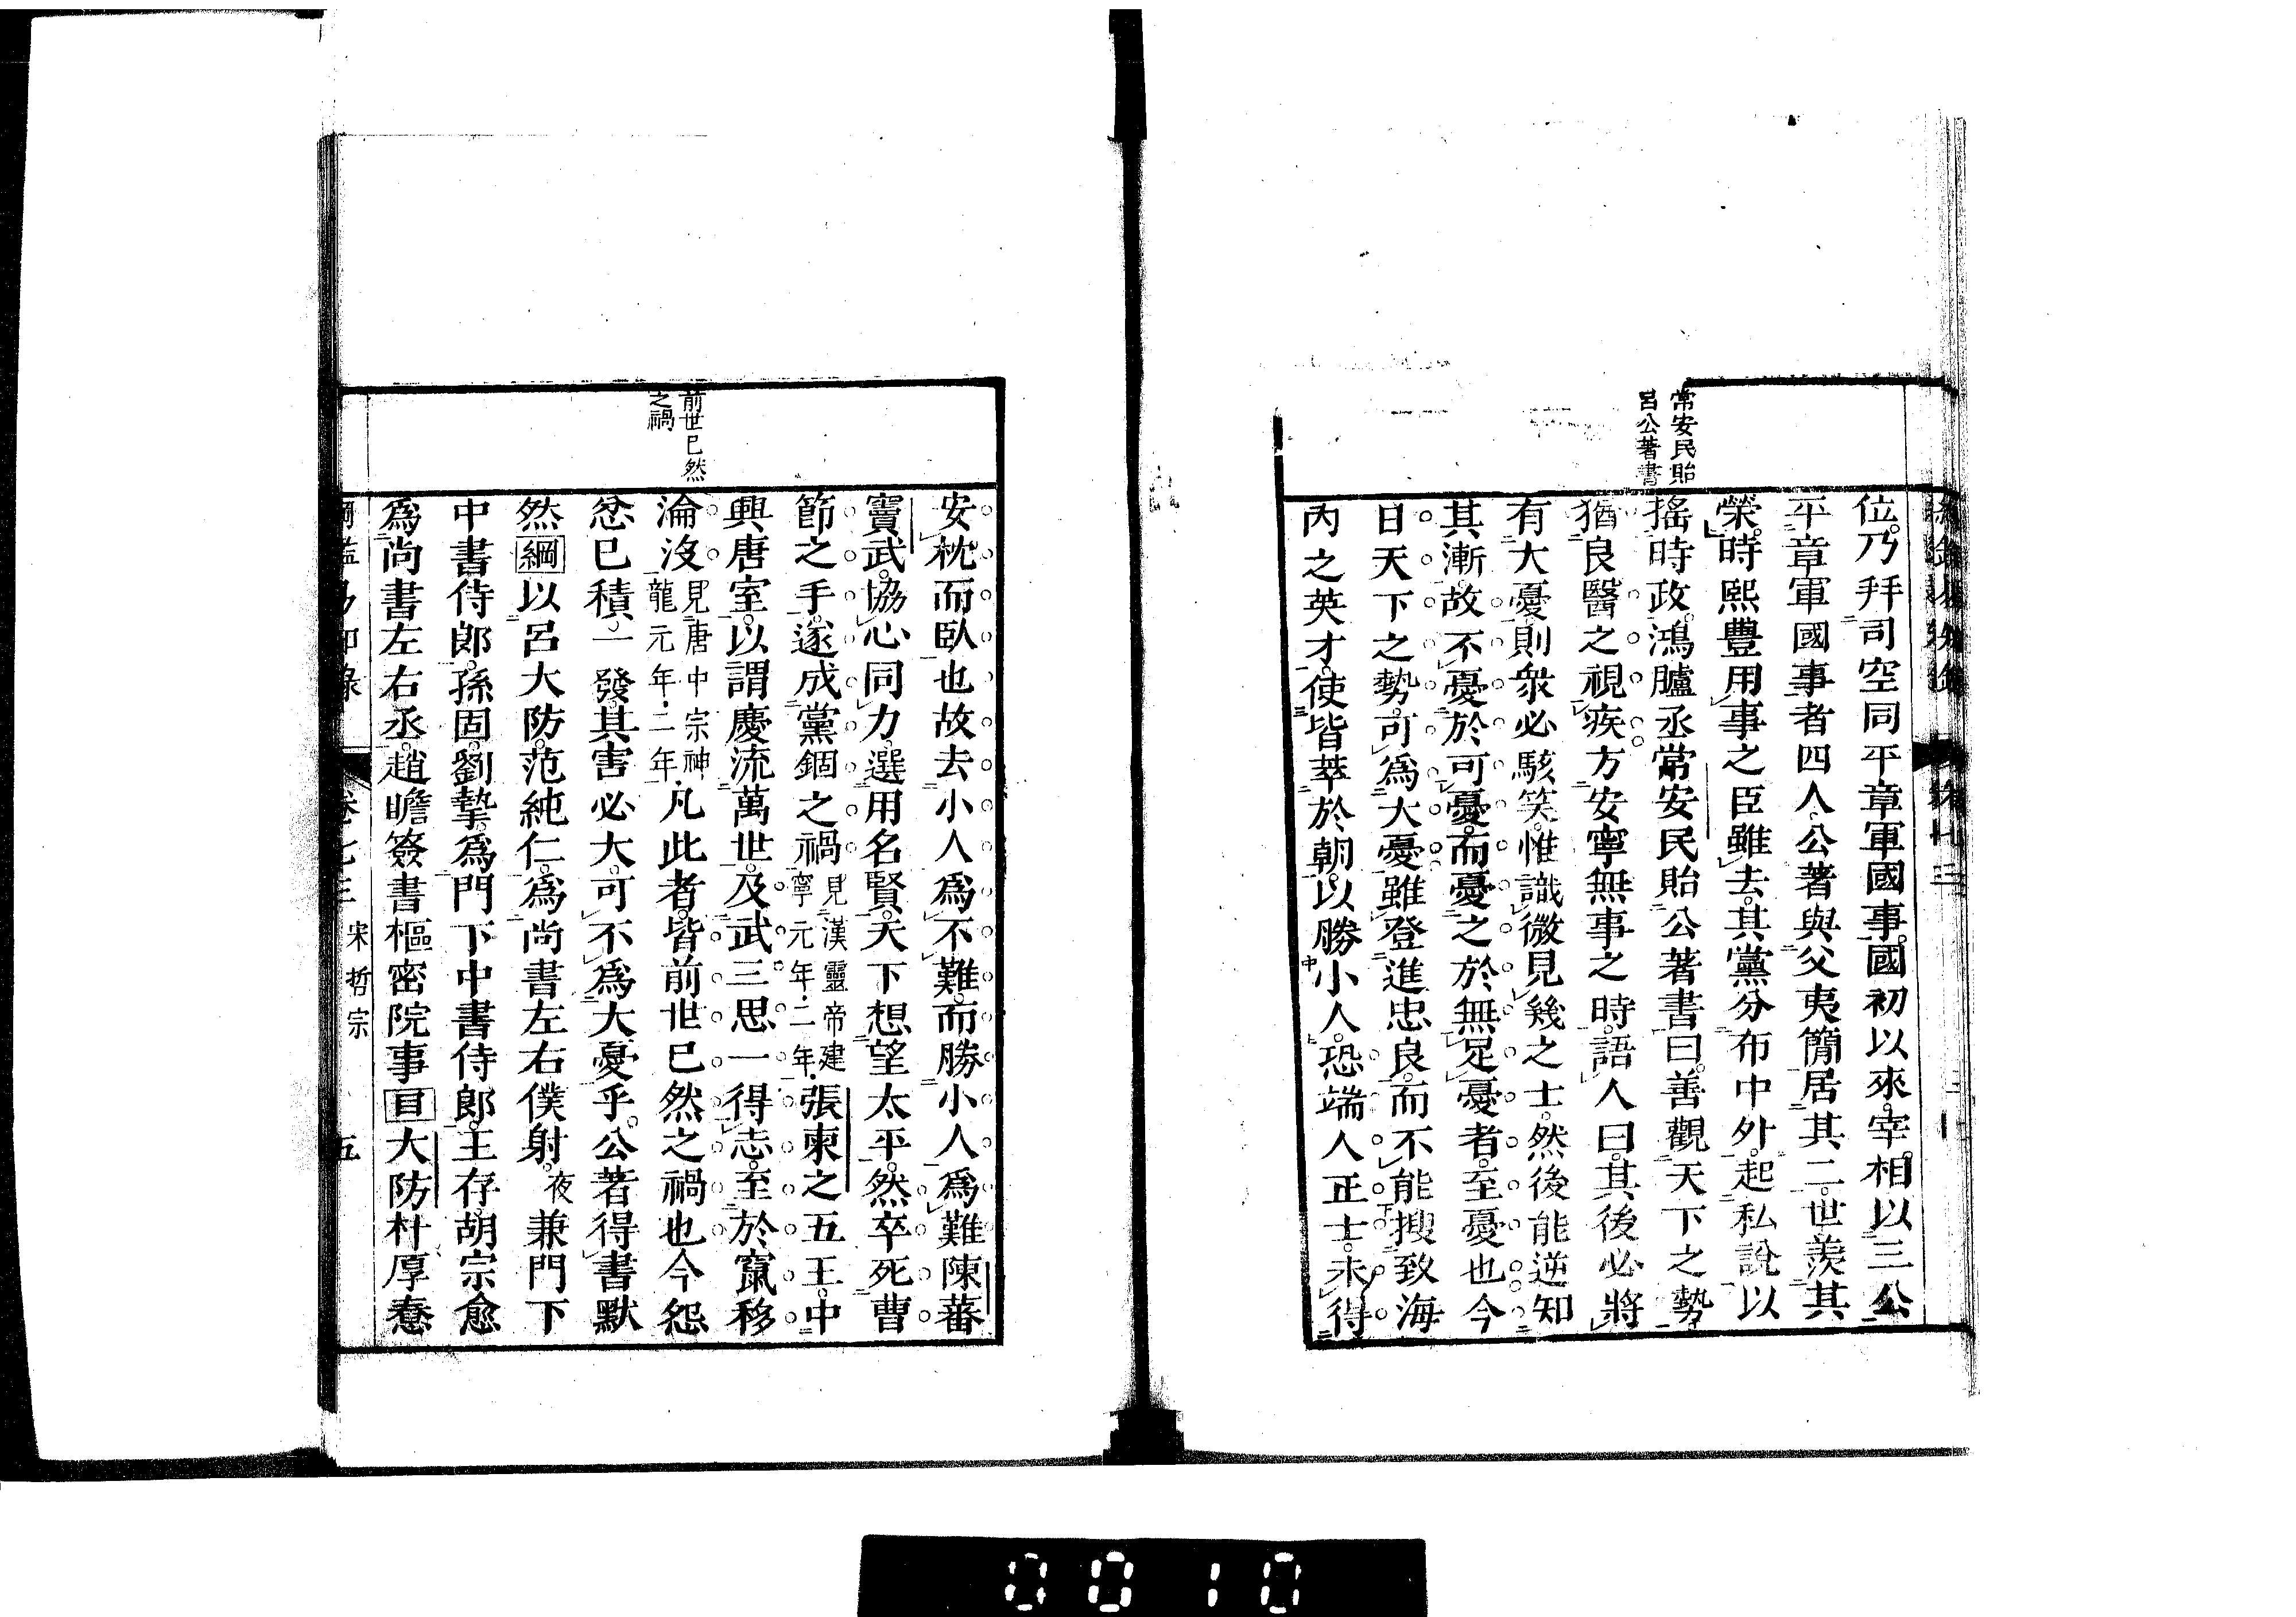 常安民貽
呂公著書
位。乃拜司空同平章軍國事。國初以來。宰相以三公
平章軍國事者四人。公著與父夷簡居其二。世羨其
榮。時熙豐用事之臣雖去。其黨分布中外。起私說以
搖時政。鴻臚丞常安民貽公著書曰。善觀天下之勢。
猶良醫之視疾。方安寧無事之時。語人曰。其後必將
有大憂。則衆必駭笑。惟識微見幾之士。然後能逆知
其漸。故不憂於可憂。而憂之於無足憂者。至憂也今
日天下之勢。可爲大憂。雖登進忠良。而不能搜致海
內之英才。使皆萃於朝。以勝小人。恐端人正士。未得
前世已然
之禍
安枕而臥也故去小人爲不難。而勝小人爲難陳蕃
竇武。協心同力。選用名賢。天下想望太平。然卒死曹
節之手。遂成黨錮之禍見漢靈帝建寧元年.二年.張柬之五王。中
興唐室。以謂慶流萬世。及武三思一得志。至於竄移
淪沒見唐中宗神龍元年.二年.凡此者。皆前世已然之禍也今怨
忿已積。一發其害必大。可不爲大憂乎。公著得書默
然綱以呂大防。范純仁。爲尚書左右僕射。夜兼門下
中書侍郎。孫固。劉摯。爲門下中書侍郎。王存。胡宗愈
爲尚書左右丞。趙瞻簽書樞密院事目大防朴厚惷
卷七三 宋哲宗 五